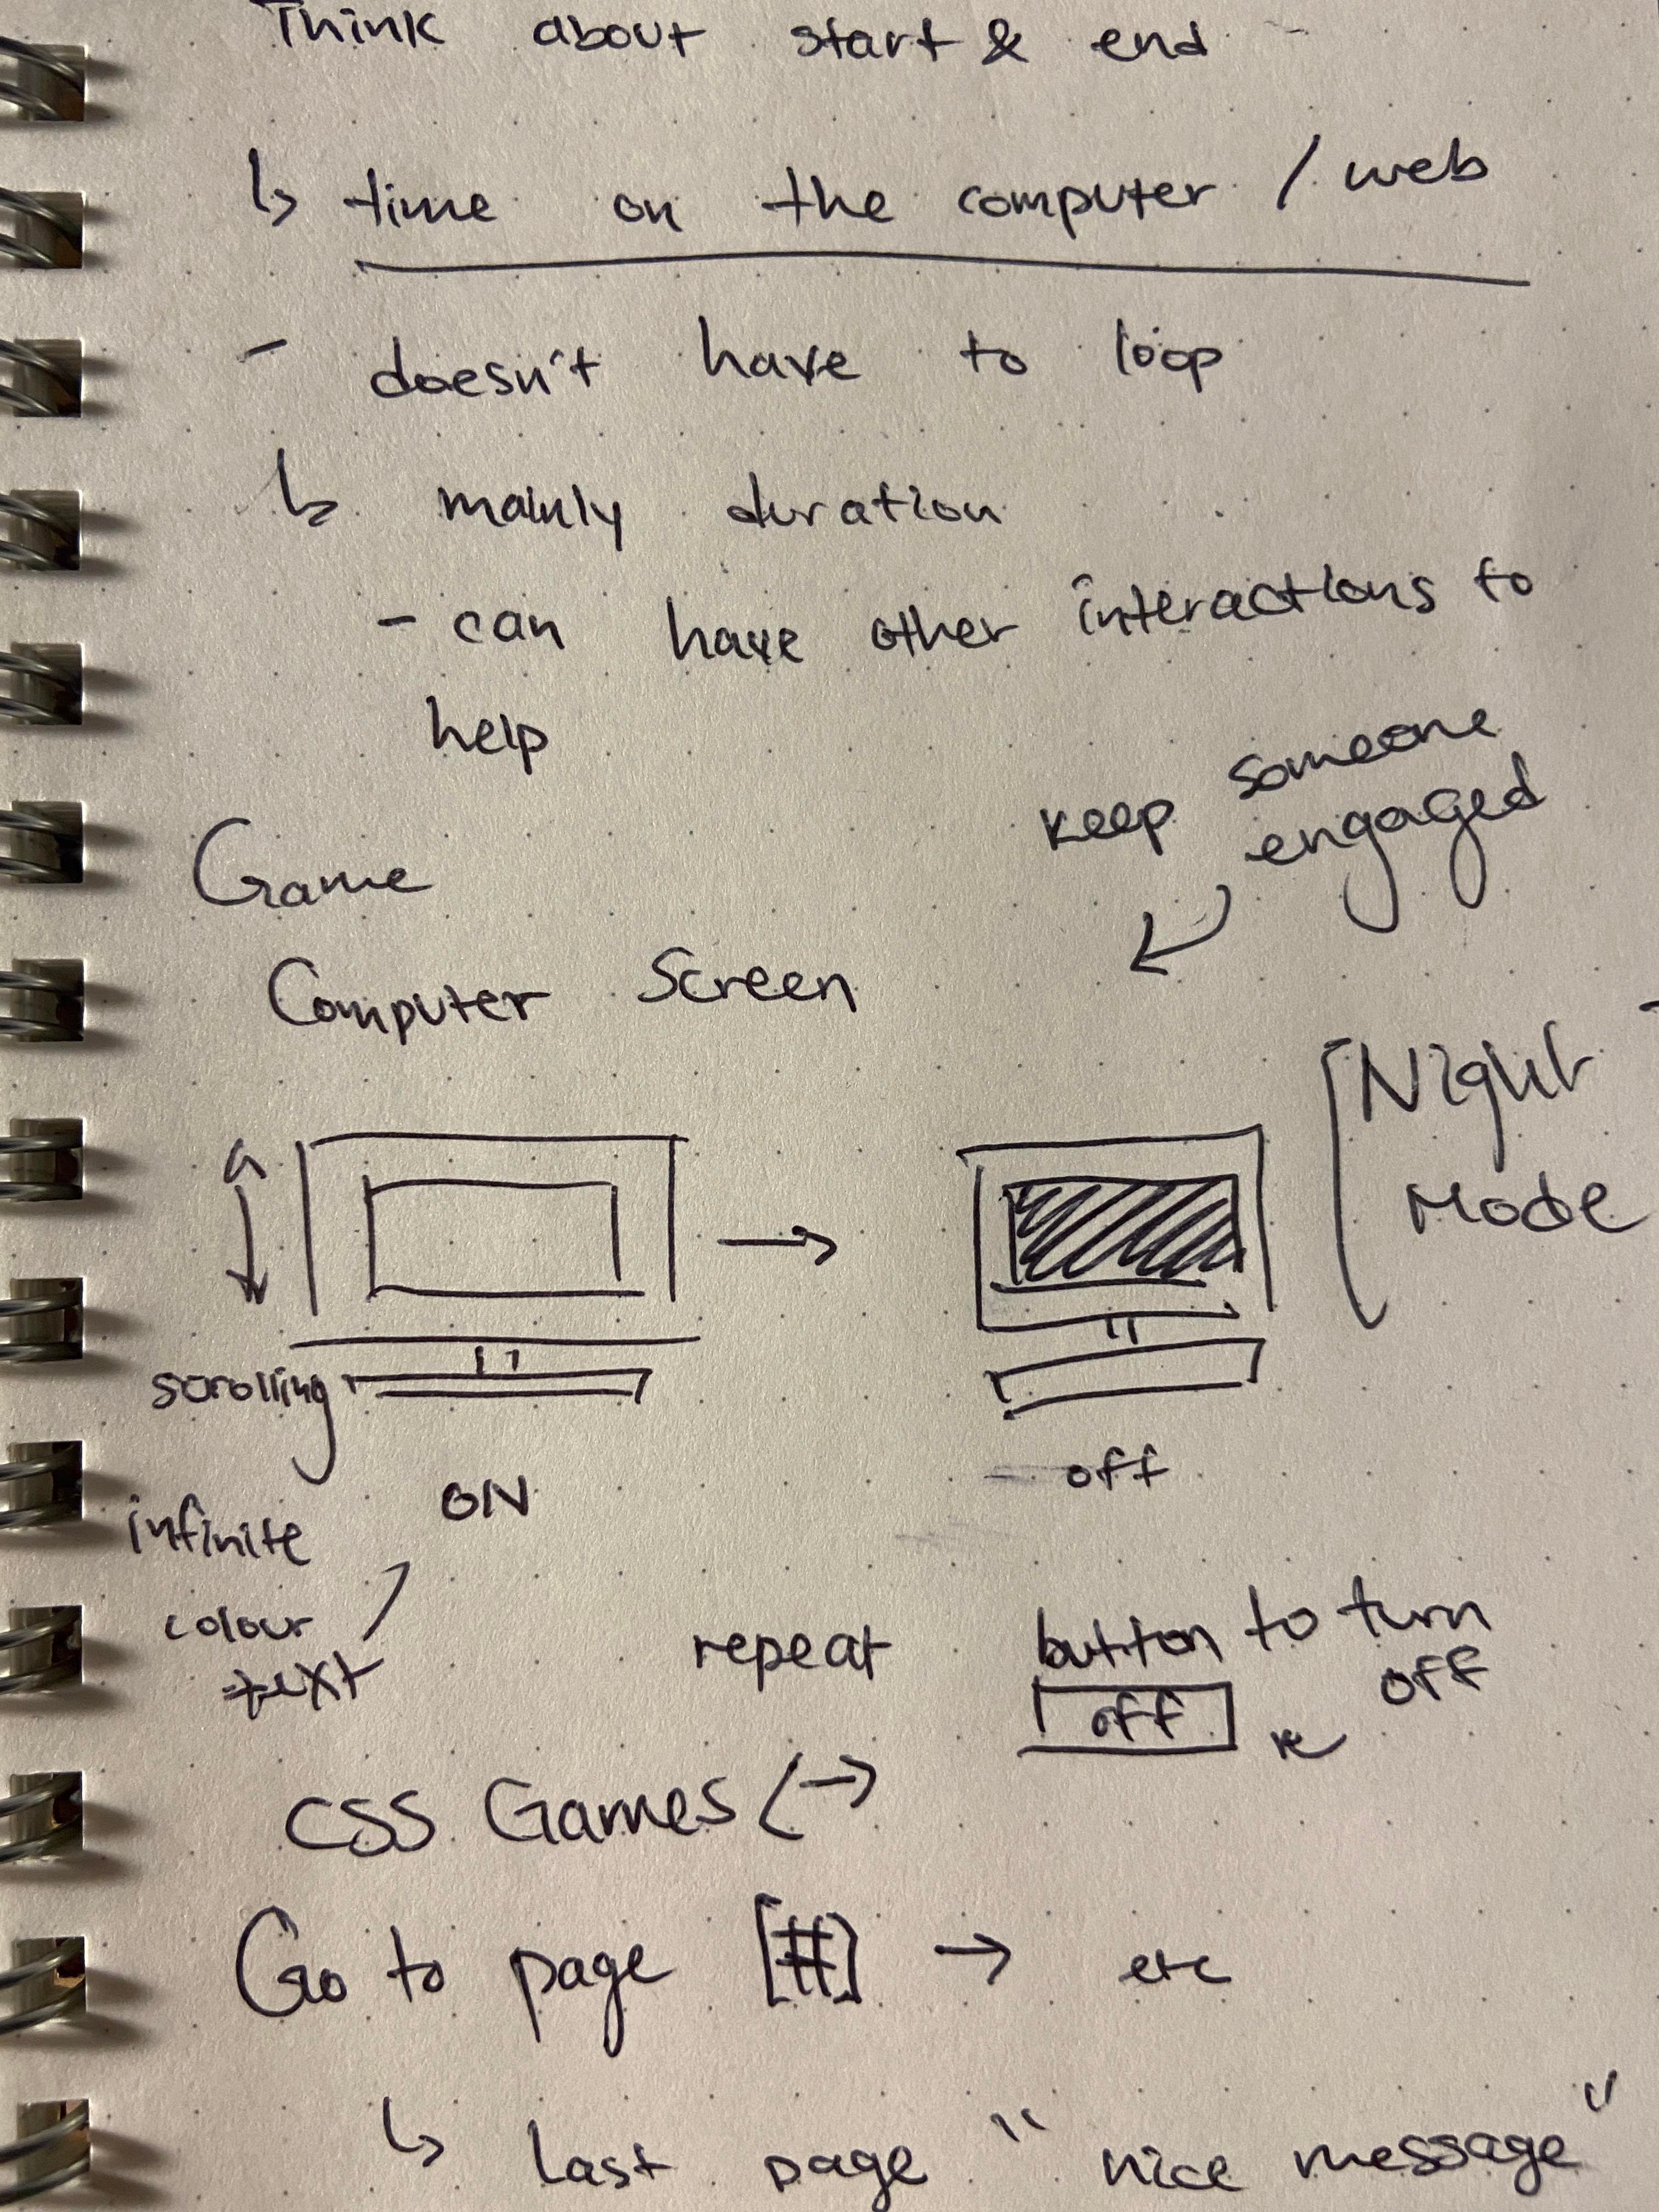 Think about start & end
↳ time on the computer / web
- doesn't have to loop
↳ mainly duration
- can have other interactions to
help
keep someone
engaged
Game
Computer Screen
Night
Mode
scrolling
ON
off
infinite
colour
text
repeat
button to turn
off
off
CSS Games
Go to page [#] → etc
↳ last page "nice message"